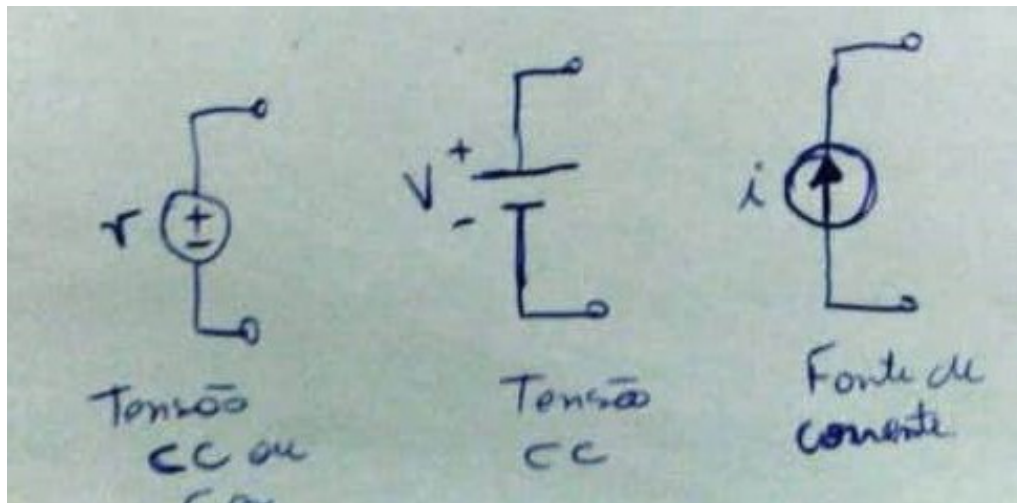 v
+
-
Tensão
CC ou
V
+
-
Tensão
CC
i
Fonte de
corrente